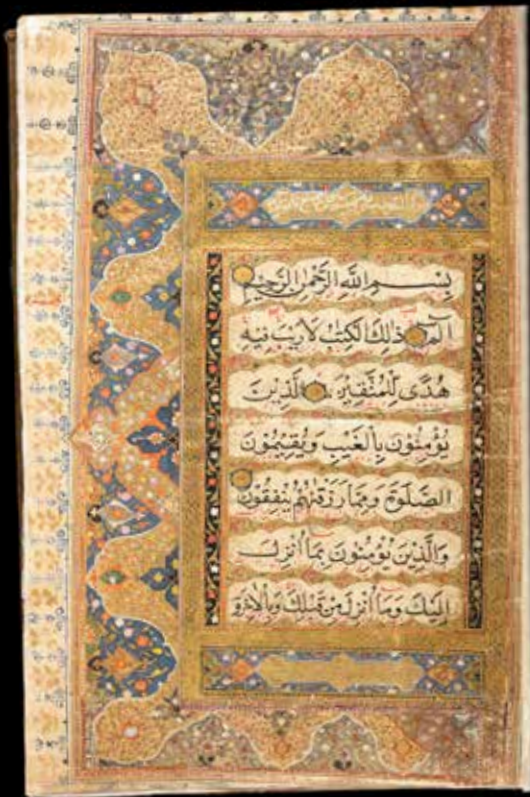 بِسْمِ اللَّهِ الرَّحْمٰنِ الرَّحِيْمِ
الٓمٓ ذٰلِكَ الْكِتٰبُ لَارَيْبَ فِيْهِ
هُدًى لِلْمُتَّقِيْنَ الَّذِيْنَ
يُؤْمِنُوْنَ بِالْغَيْبِ وَيُقِيْمُوْنَ
الصَّلٰوةَ وَمِمَّا رَزَقْنٰهُمْ يُنْفِقُوْنَ
وَالَّذِيْنَ يُؤْمِنُوْنَ بِمَآ اُنْزِلَ
اِلَيْكَ وَمَآ اُنْزِلَ مِنْ قَبْلِكَ وَبِالْاٰخِرَةِ